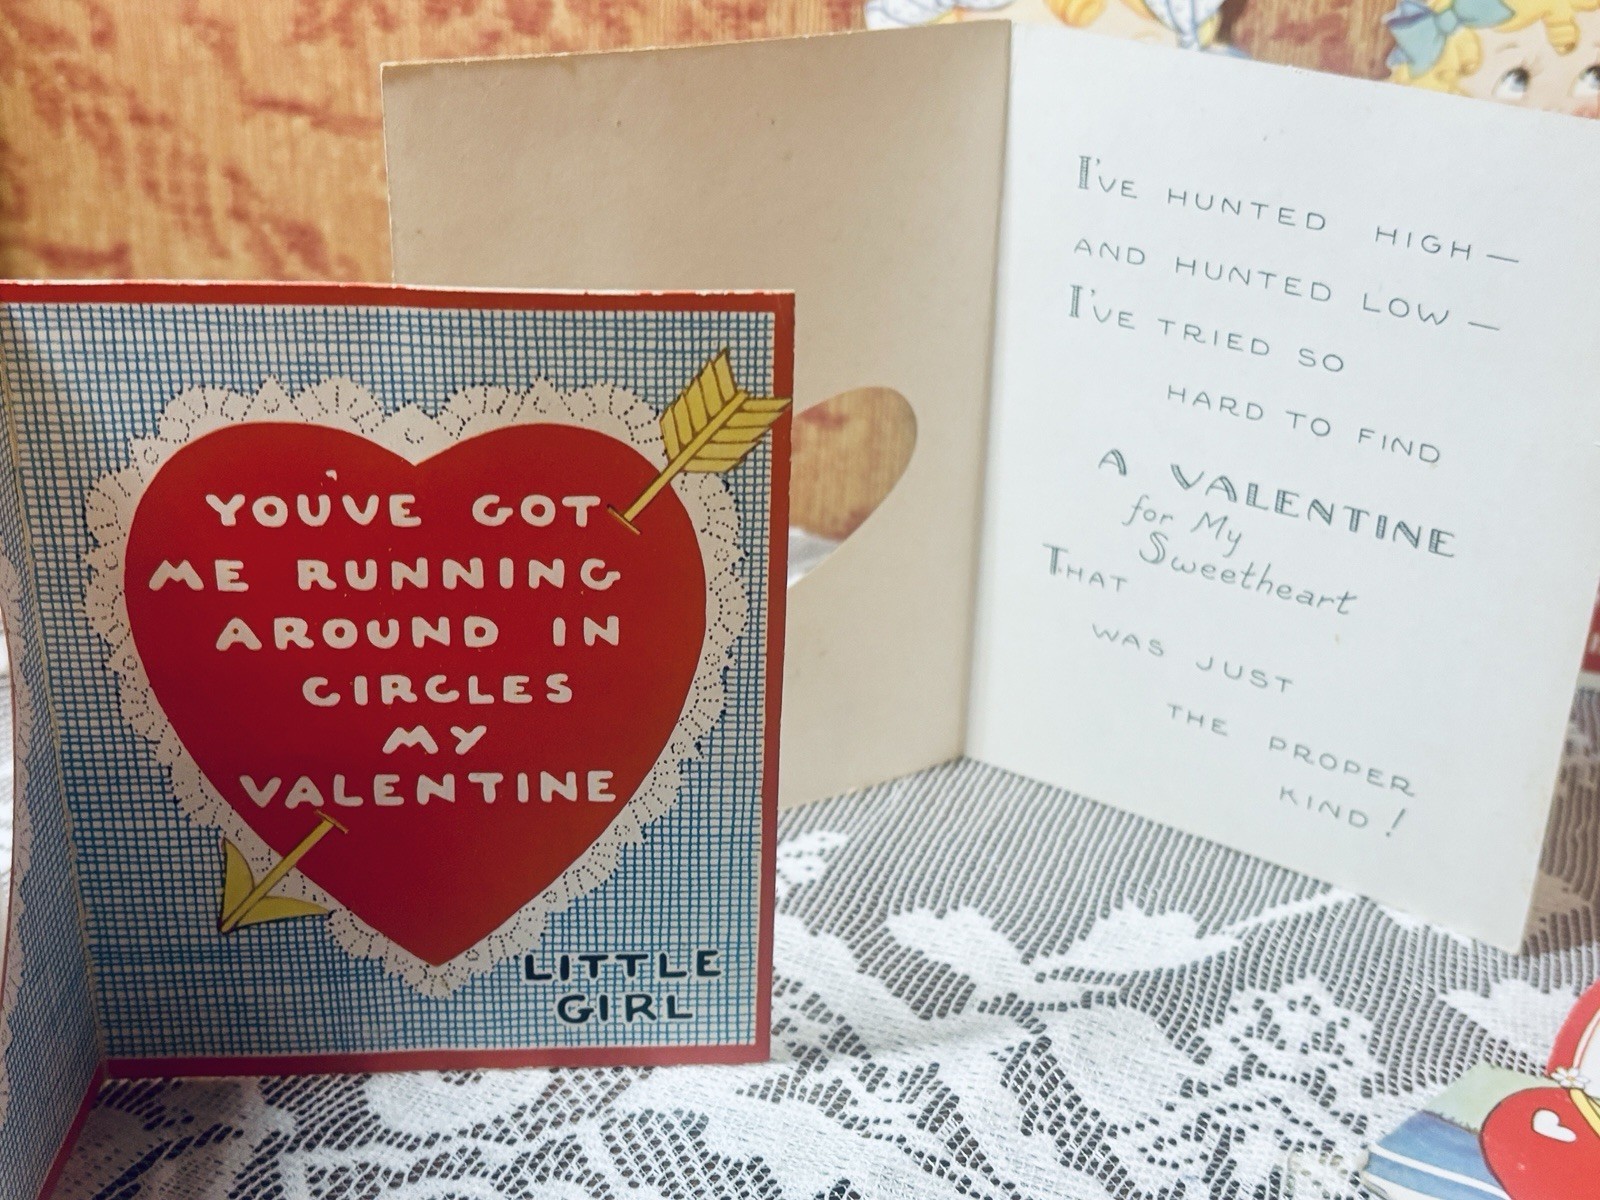 YOU'VE GOT
ME RUNNING
AROUND IN
CIRCLES
MY
VALENTINE
LITTLE
GIRL
I'VE HUNTED HIGH—
AND HUNTED LOW—
I'VE TRIED SO
HARD TO FIND
A VALENTINE
for My
Sweetheart
THAT
WAS JUST
THE PROPER
KIND!